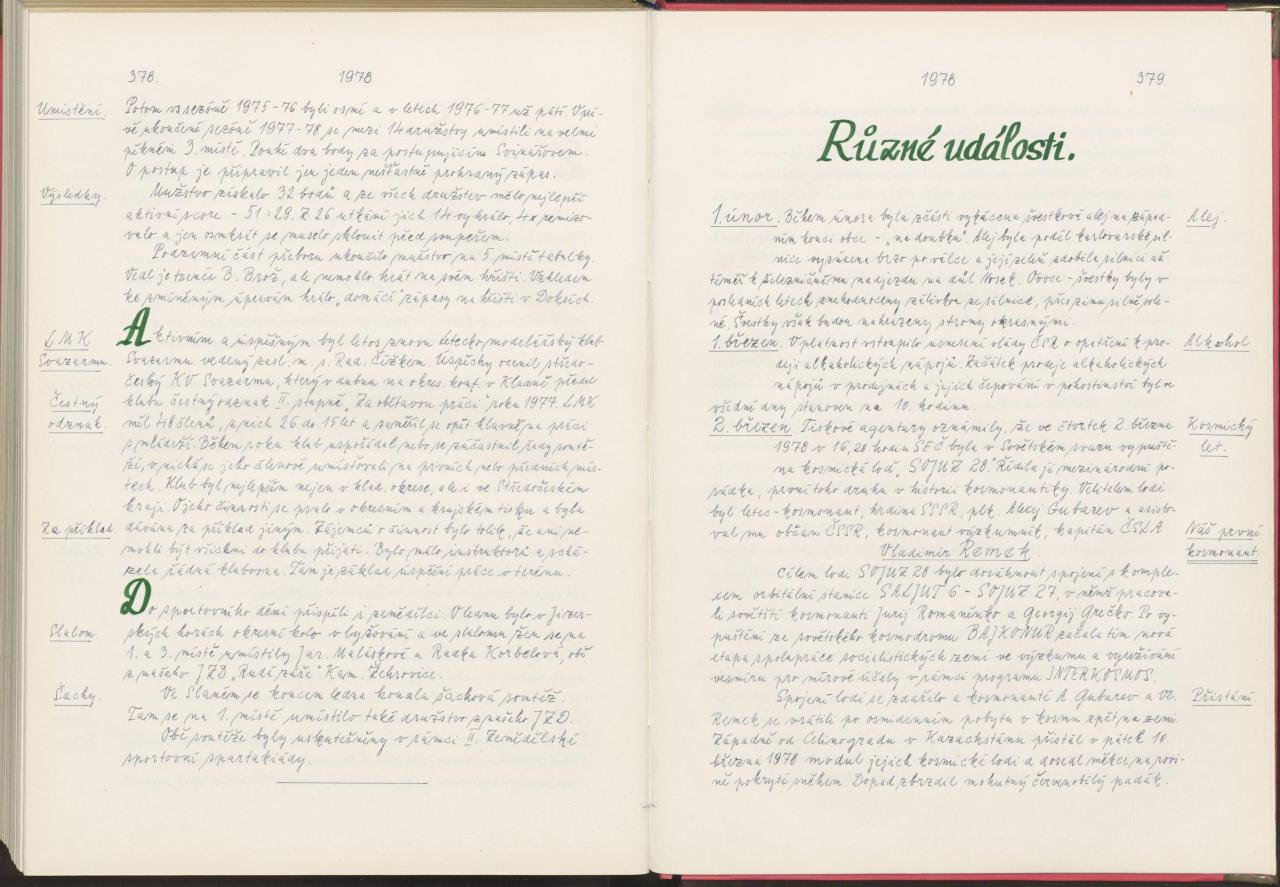 378.
1978
Umístění.
Potom v sezóně 1975-76 byli osmí a v letech 1976-77 už pátí. V prá-
vě ukončené sezóně 1977-78 se mezi 14 družstvy umístili na velmi
pěkném 3. místě. Pouhé dva body za postupujícím Svinařovem.
O postup je připravil jen jeden nešťastně prohraný zápas.
Výsledky.
Mužstvo získalo 32 bodů a ze všech družstev mělo nejlepší
aktivní score - 51:29. Z 26 utkání jich 14 vyhrálo, 4x remizo-
valo a jen osmkrát se muselo sklonit před soupeřem.
Podzimní část přeboru ukončilo mužstvo na 5. místě tabulky.
Vedl je trenér B. Brož, ale nemohlo hrát na svém hřišti. Vzhledem
ke zmíněným úpravám hrálo, domácí zápasy na hřišti v Doksích.
LMK
Svazarmu.
Aktivním a úspěšným byl letos znovu letecko modelářský klub
Svazarmu vedený zasl. m. s. Rad. Čížkem. Úspěchy ocenil středo-
český KV Svazarmu, který v dubnu na okres. konf. v Kladně předal
Čestný
odznak.
klubu čestný odznak II. stupně "Za obětavou práci" roku 1977. LMK
měl 48 členů, z nich 26 do 15 let a zaměřil se opět hlavně na práci
s mládeží. Během roku klub uspořádal nebo se zúčastnil řady soutě-
ží, v nichž se jeho členové umísťovali na prvních nebo předních mís-
tech. Klub byl nejlepším nejen v klad. okrese, ale i ve Středočeském
kraji. O jeho činnosti se psalo v okresním a krajském tisku a byla
Za příklad.
dávána za příklad jiným. Zájemců o činnost bylo tolik, že ani ne-
mohli být všichni do klubu přijati. Bylo málo instruktorů a schá-
zela řádná klubovna. Tam je základ úspěšné práce v terénu.
Do sportovního dění přispěli i zemědělci. V lednu bylo v Jizer-
Slalom.
ských horách okresní kolo v lyžování a ve slalomu žen se na
1. a 3. místě umístily Jar. Malásková a Radka Korbelová, obě
z našeho JZD "Rudá záře" Kam. Žehrovice.
Šachy.
Ve Slaném se koncem ledna konala šachová soutěž.
Tam se na 1. místě umístilo také družstvo z našeho JZD.
Obě soutěže byly uskutečněny v rámci II. Zemědělské
sportovní spartakiády.
1978
379.
Různé události.
1. únor. Během února byla zčásti vykácena švestková alej na západ-
Alej.
ním konci obce - "na doubku". Alej byla podél karlovarské sil-
nice vysázena brzo po válce a její zeleň zdobila silnici až
téměř k železničnímu nadjezdu na důl Nosek. Ovoce - švestky byly v
posledních letech znehodnoceny zálivkou ze silnice, přes zimu silně sole-
né. Švestky však budou nahrazeny stromy okrasnými.
1. březen. V platnost vstoupilo usnesení vlády ČSR o opatření k pro-
Alkohol
deji alkoholických nápojů. Začátek prodeje alkoholických
nápojů v prodejnách a jejich čepování v pohostinství byl ve
všední dny stanoven na 10. hodinu.
2. březen. Tiskové agentury oznámily, že ve čtvrtek 2. března
Kosmický
let.
1978 v 16,28 hodin SEČ byla v Sovětském svazu vypuště-
na kosmická loď "SOJUZ 28." Řídila ji mezinárodní po-
sádka, první toho druhu v historii kosmonautiky. Velitelem lodi
byl letec-kosmonaut, hrdina SSSR, plk. Alexej Gubarev a asisto-
val mu občan ČSSR, kosmonaut výzkumník, kapitán ČSLA
Náš první
kosmonaut.
Vladimír Remek.
Cílem lodi SOJUZ 28 bylo dosáhnout spojení s komple-
xem orbitální stanice SALJUT 6 - SOJUZ 27, v němž pracova-
li sovětští kosmonauti Jurij Romaněnko a Georgij Grečko. Po vy-
puštění ze sovětského kosmodromu BAJKONUR začala tím nová
etapa spolupráce socialistických zemí ve výzkumu a využívání
vesmíru pro mírové účely v rámci programu INTERKOSMOS.
Spojení lodí se zdařilo a kosmonauti A. Gubarev a Vl.
Přistání.
Remek se vrátili po osmidenním pobytu v kosmu zpět na zemi.
Západně od Celinogradu v Kazachstánu přistál v pátek 10.
března 1978 modul jejich kosmické lodi a dosedl měkce na rovi-
ně pokryté sněhem. Dopad zbrzdil mohutný červenobílý padák.